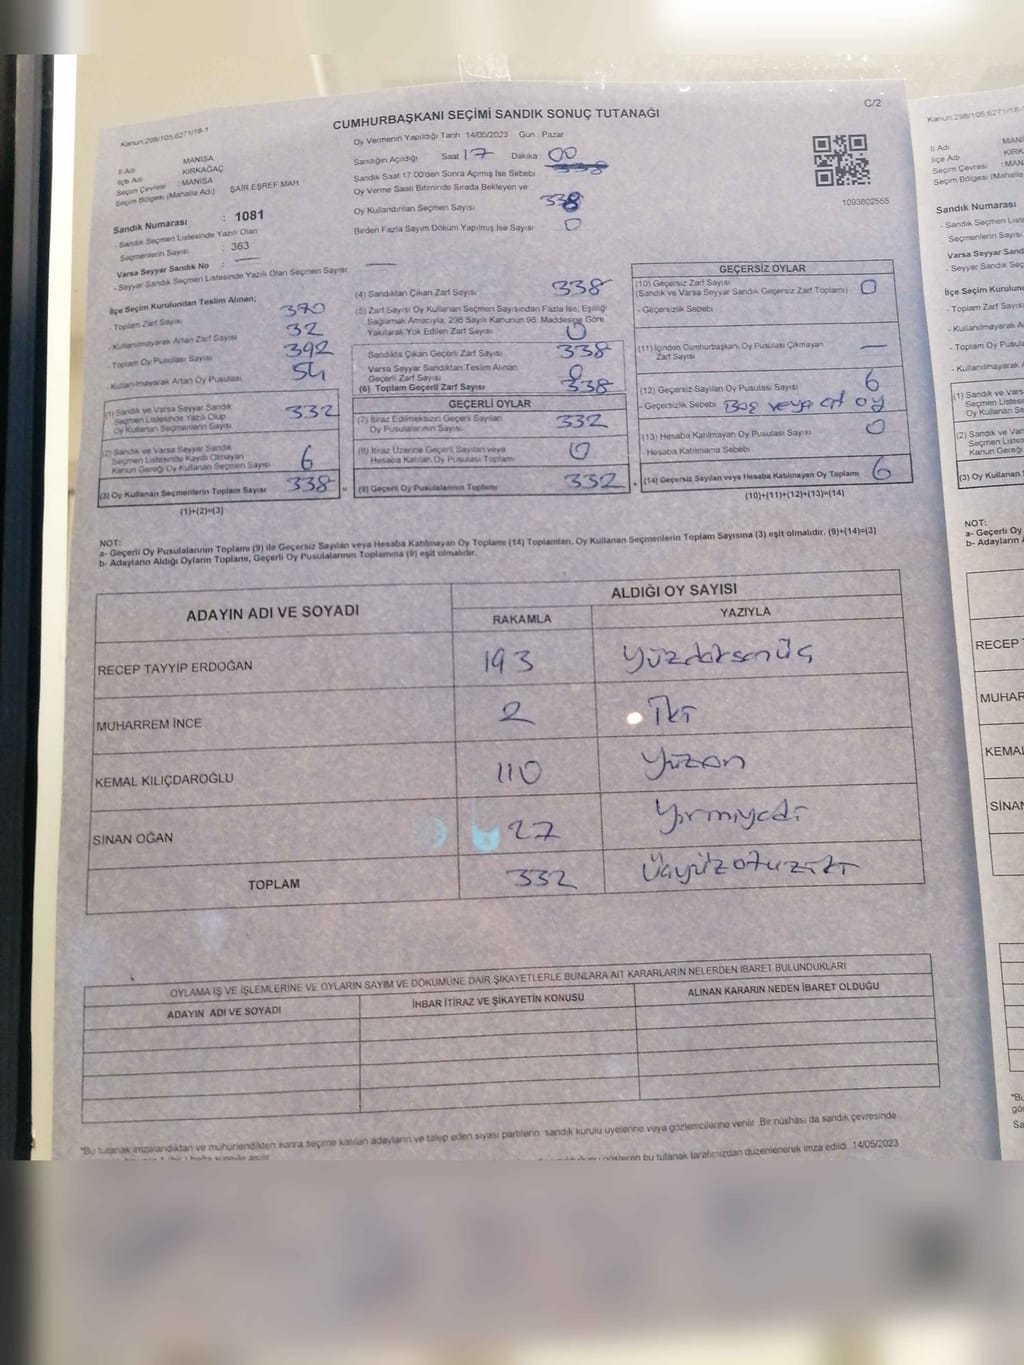 Kanun:298/105,6271/18-1
CUMHURBAŞKANI SEÇİMİ SANDIK SONUÇ TUTANAĞI
C/2
Oy Vermenin Yapıldığı Tarih 14/05/2023 Gün Pazar
İl Adı MANİSA
İlçe Adı KIRKAĞAÇ
Seçim Çevresi : MANİSA
Seçim Bölgesi (Mahalle Adı) ŞAİR EŞREF MAH
Sandık Numarası : 1081
- Sandık Seçmen Listesinde Yazılı Olan
Seçmenlerin Sayısı : 363
Varsa Seyyar Sandık No
- Seyyar Sandık Seçmen Listesinde Yazılı Olan Seçmen Sayısı
Sandığın Açıldığı Saat 17 Dakika 00
Sandık Saat 17.00'den Sonra Açılmış İse Sebebi 338
Oy Verme Saati Bitiminde Sırada Bekleyen ve
Oy Kullandırılan Seçmen Sayısı 338
Birden Fazla Sayım Döküm Yapılmış İse Sayısı 0
1093802555
İlçe Seçim Kurulundan Teslim Alınan;
- Toplam Zarf Sayısı 370
- Kullanılmayarak Artan Zarf Sayısı 32
- Toplam Oy Pusulası Sayısı 392
- Kullanılmayarak Artan Oy Pusulası 54
(1) Sandık ve Varsa Seyyar Sandık
Seçmen Listesinde Yazılı Olup
Oy Kullanan Seçmenlerin Sayısı 332
(2) Sandık ve Varsa Seyyar Sandık
Seçmen Listesinde Kayıtlı Olmayan
Kanun Gereği Oy Kullanan Seçmen Sayısı 6
(3) Oy Kullanan Seçmenlerin Toplam Sayısı 338
(1)+(2)=(3)
(4) Sandıktan Çıkan Zarf Sayısı 338
(5) Zarf Sayısı Oy Kullanan Seçmen Sayısından Fazla İse, Eşitliği
Sağlamak Amacıyla; 298 Sayılı Kanunun 98. Maddesine Göre
Yakılarak Yok Edilen Zarf Sayısı 0
Sandıkta Çıkan Geçerli Zarf Sayısı 338
Varsa Seyyar Sandıktan Teslim Alınan
Geçerli Zarf Sayısı 0
(6) Toplam Geçerli Zarf Sayısı 338
GEÇERLİ OYLAR
(7) İtiraz Edilmeksizin Geçerli Sayılan
Oy Pusulalarının Sayısı 332
(8) İtiraz Üzerine Geçerli Sayılan veya
Hesaba Katılan Oy Pusulası Toplamı 0
(9) Geçerli Oy Pusulalarının Toplamı 332
GEÇERSİZ OYLAR
(10) Geçersiz Zarf Sayısı
(Sandık ve Varsa Seyyar Sandık Geçersiz Zarf Toplamı) 0
- Geçersizlik Sebebi
(11) İçinden Cumhurbaşkanı Oy Pusulası Çıkmayan
Zarf Sayısı —
(12) Geçersiz Sayılan Oy Pusulası Sayısı 6
- Geçersizlik Sebebi Boş veya oy
(13) Hesaba Katılmayan Oy Pusulası Sayısı 0
Hesaba Katılmama Sebebi
(14) Geçersiz Sayılan veya Hesaba Katılmayan Oy Toplamı 6
(10)+(11)+(12)+(13)=(14)
NOT:
a- Geçerli Oy Pusulalarının Toplamı (9) ile Geçersiz Sayılan veya Hesaba Katılmayan Oy Toplamı (14) Toplamları, Oy Kullanan Seçmenlerin Toplam Sayısına (3) eşit olmalıdır. (9)+(14)=(3)
b- Adayların Aldığı Oyların Toplamı, Geçerli Oy Pusulalarının Toplamına (9) eşit olmalıdır.
ADAYIN ADI VE SOYADI
ALDIĞI OY SAYISI
RAKAMLA YAZIYLA
RECEP TAYYİP ERDOĞAN 193 Yüzdoksanüç
MUHARREM İNCE 2 İki
KEMAL KILIÇDAROĞLU 110 Yüzon
SİNAN OĞAN 27 Yirmiyedi
TOPLAM 332 Üçyüzotuziki
OYLAMA İŞ VE İŞLEMLERİNE VE OYLARIN SAYIM VE DÖKÜMÜNE DAİR ŞİKAYETLERLE BUNLARA AİT KARARLARIN NELERDEN İBARET BULUNDUKLARI
ADAYIN ADI VE SOYADI İHBAR İTİRAZ VE ŞİKAYETİN KONUSU ALINAN KARARIN NEDEN İBARET OLDUĞU
*Bu tutanak imzalandıktan ve mühürlendikten sonra seçime katılan adayların ve talep eden siyasi partilerin sandık kurulu üyelerine veya gözlemcilerine verilir. Bir nüshası da sandık çevresinde
bu tutanak tarafımızdan düzenlenerek imza edildi. 14/05/2023
Kanun:298/105,6271/18-1
İl Adı MANİ
İlçe Adı KIRK
Seçim Çevresi : MAN
Seçim Bölgesi (Mahalle
Sandık Numarası
- Sandık Seçmen Listesi
Seçmenlerin Sayısı
Varsa Seyyar Sand
- Seyyar Sandık Seçmen
İlçe Seçim Kurulund
- Toplam Zarf Sayısı
- Kullanılmayarak Arta
- Toplam Oy Pusulası
- Kullanılmayarak
(1) Sandık ve Varsa S
Seçmen Listesinde
Oy Kullanan Seçme
(2) Sandık ve Varsa
Seçmen Listesinde
(3) Oy Kullanan
NOT:
a- Geçerli Oy Pusu
b- Adayların
RECEP
MUHAR
KEMAL
SİNAN